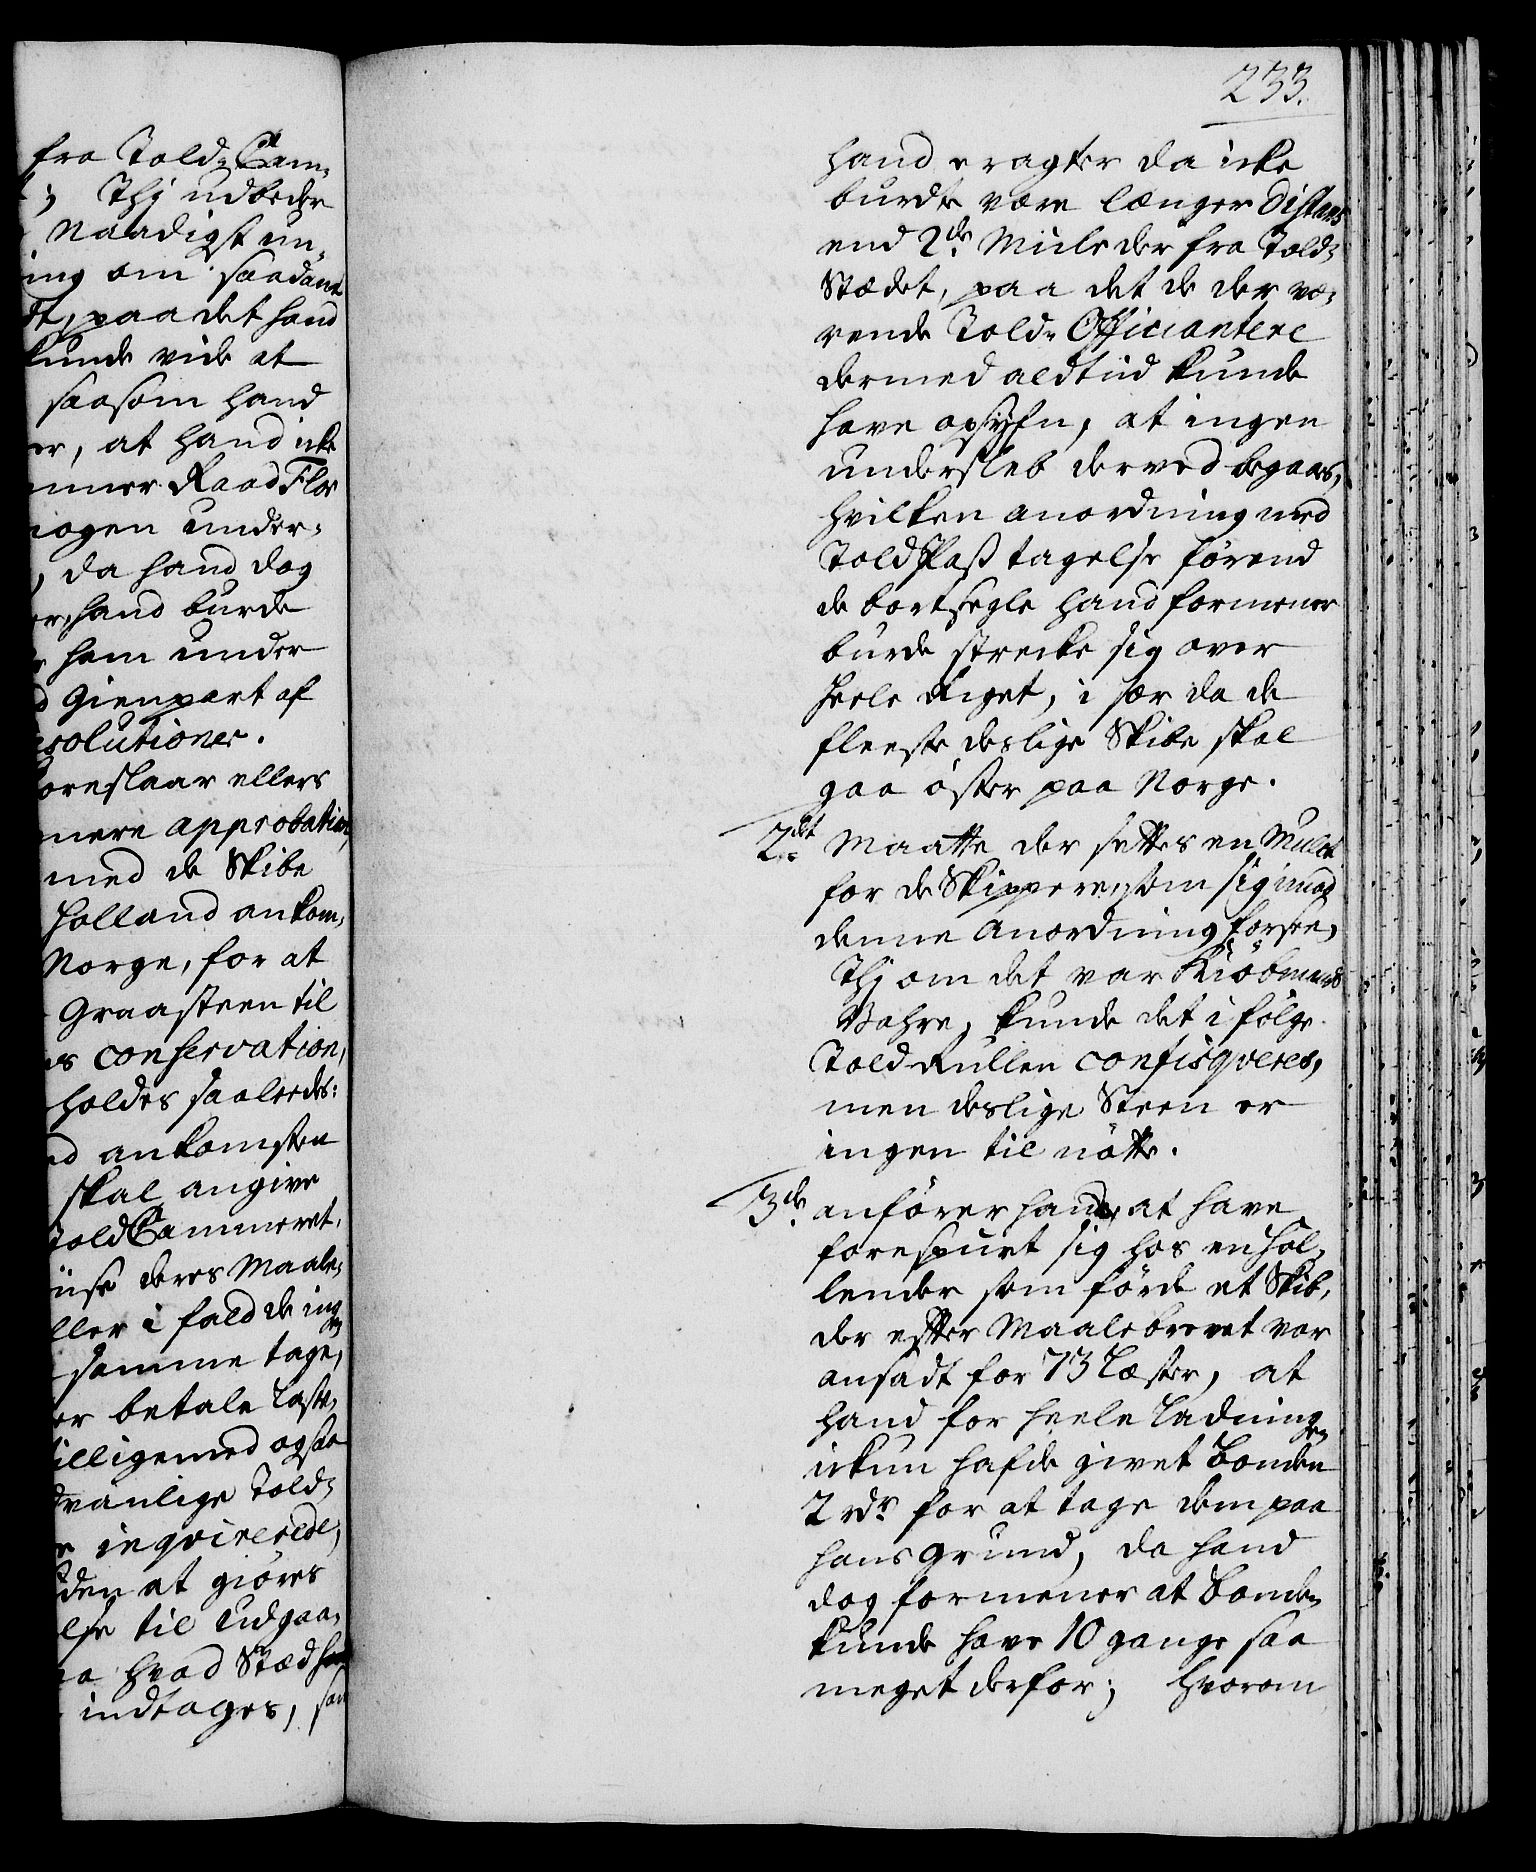 fra Told-Cam-
; Thj udbeder
Naadigst un-
ing om saadant
dt, paa det hand
kunde vide at
saasom hand
er, at hand icke
mmer Raad Flor
nogen under-
, da hand dog
er, hand burde
ham under
d Gienpart af
esolutioner.
foreslaar ellers
nere approbation,
med de Skibe
Holland ankom-
Norge, for at
Graasteen til
es conservation,
holdes saaledes:
ed ankomsten
skal angive
Told Cammeret,
iise deres Maale-
ller i fald de ingen
samme tage,
er betale Laste-
illigemed ogsaa
dvanlige Told-
inqvirerede,
den at giöres
else til udgaa-
aa hvad Stæd
indtages, som
233.
hand eragter da icke
burde være længer Distans
end 2de Miile der fra Told-
Stædet, paa det de der væ-
rende Told-Officiantere
dermed aldtiid kunde
have opsÿn, at ingen
undersleb derved begaaes,
hvilken anordning med
Told Pass tagelse förend
de bortsegle hand formener
burde strecke sig over
heele Riget, i sær da de
fleeste deslige Skibe skal
gaa öster paa Norge.
2det Maatte der settes en Mulct
for de Skippere, som sig imod
denne Anordning forsee,
Thj om det var Kiöbmands
Vahre, kunde det i fölge
Told-Rullen confisqveres,
men deslige Steen er
ingen til nötte.
3de anförer hand, at have
forespurt sig hos en Hol-
lender som förde et Skib,
der efter Maalebrevet var
ansadt for 73 Læster, at
hand for heele Ladningen
ickun hafde givet Bonden
2 rdr for at tage dem paa
hans Grund, da hand
dog formener at Bonden
kunde have 10 gange saa
meget derfor; hvorom